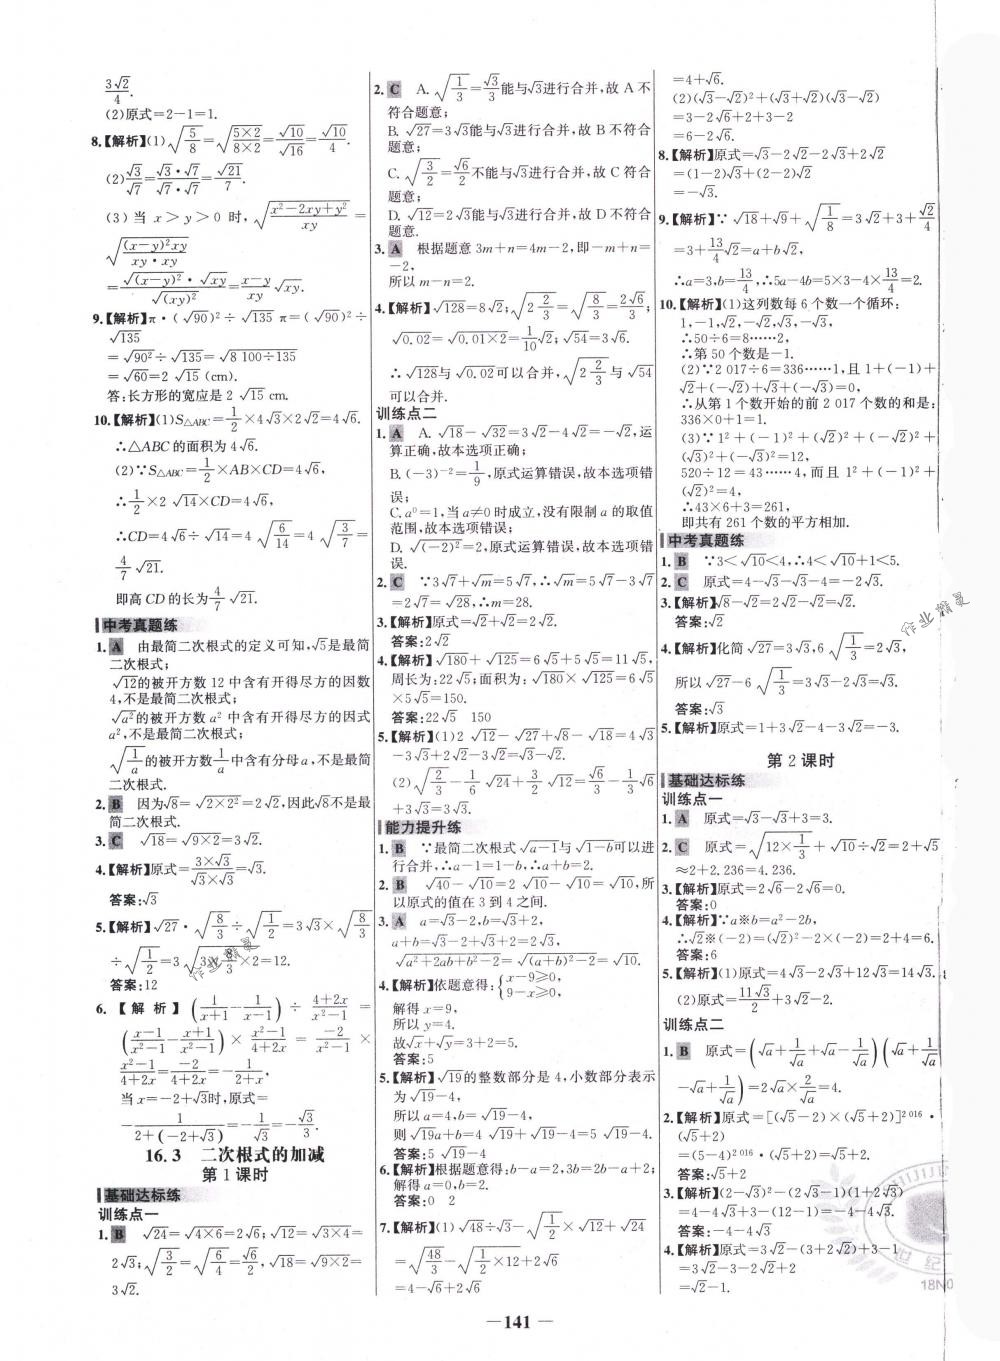 3√2/4.
(2)原式=2-1=1.
8.【解析】(1)√(5/8)=√((5×2)/(8×2))=√10/√16=√10/4.
(2)√3/√7=(√3·√7)/(√7·√7)=√21/7.
(3)当 x>y>0 时,√((x²-2xy+y²)/xy)=
√((x-y)²xy/(xy·xy))
=(√(x-y)²·√xy)/√(xy)²=(x-y)/xy √xy.
9.【解析】π·(√90)²÷√135 π=(√90)²÷
√135
=√90²÷√135=√8 100÷135
=√60=2√15(cm).
答:长方形的宽应是 2√15 cm.
10.【解析】(1)S△ABC=1/2×4√3×2√2=4√6.
∴△ABC的面积为4√6.
(2)∵S△ABC=1/2×AB×CD=4√6,
∴1/2×2√14×CD=4√6,
∴CD=4√6÷√14=4√(6/14)=4√(3/7)=
4/7√21.
即高CD的长为4/7√21.
中考真题练
1. A 由最简二次根式的定义可知,√5是最简
二次根式;
√12的被开方数 12 中含有开得尽方的因数
4,不是最简二次根式;
√a²的被开方数 a² 中含有开得尽方的因式
a²,不是最简二次根式;
√(1/a)的被开方数中含有分母a,不是最简
二次根式.
2. B 因为√8=√2×2²=2√2,因此√8不是最
简二次根式.
3. C √18=√9×2=3√2.
4.【解析】原式=(3×√3)/(√3×√3)=√3.
答案:√3
5.【解析】√27·√(8/3)÷√(1/2)=3√3×√(8/3)
÷√(1/2)=3√(3×8/3×2)=12.
答案:12
6.【解析】(1/(x+1)-1/(x-1))÷(4+2x)/(x²-1)=
((x-1)/(x²-1)-(x+1)/(x²-1))×(x²-1)/(4+2x)=-2/(x²-1)×
(x²-1)/(4+2x)=-2/(4+2x)=-1/(2+x),
当x=-2+√3时,原式=
-1/(2+(-2+√3))=-1/√3=-√3/3.
16.3 二次根式的加减
第1课时
基础达标练
训练点一
1. B √24=√4×6=2√6;√12=√3×4=
2√3;√(3/2)=√(6/4)=√6/2,√18=√9×2=
3√2.
2. C A.√(1/3)=√3/3能与√3进行合并,故 A 不
符合题意;
B.√27=3√3能与√3进行合并,故 B 不符合
题意;
C.√(3/2)=√6/2不能与√3进行合并,故 C 符合
题意;
D.√12=2√3能与√3进行合并,故 D 不符合
题意.
3. A 根据题意 3m+n=4m-2,即-m+n=
-2,
所以 m-n=2.
4.【解析】√128=8√2;√(2 2/3)=√(8/3)=2√6/3;
√0.02=√0.01×2=1/10√2;√54=3√6.
∴√128与√0.02可以合并,√(2 2/3)与√54
可以合并.
训练点二
1. A A.√18-√32=3√2-4√2=-√2,运
算正确,故本选项正确;
B.(-3)⁻²=1/9,原式运算错误,故本选项错
误;
C.a⁰=1,当a≠0时成立,没有限制 a 的取值
范围,故本选项错误;
D.√(-2)²=2,原式运算错误,故本选项错
误.
2. C ∵3√7+√m=5√7,∴√m=5√7-3√7
=2√7=√28,∴m=28.
3.【解析】原式=√2+√2=2√2.
答案:2√2
4.【解析】√180+√125=6√5+5√5=11√5,
周长为:22√5;面积为:√180×√125=6√5
×5√5=150.
答案:22√5 150
5.【解析】(1)2√12-√27+√8-√18=4√3
-3√3+2√2-3√2=√3-√2.
(2)√(2/3)-1/6√24+3/2√12=√6/3-1/3√6
+3√3=3√3.
能力提升练
1. B ∵最简二次根式√a-1与√1-b可以进
行合并,∴a-1=1-b,∴a+b=2.
2. B √40-√10=2√10-√10=√10,所
以原式的值在 3 到 4 之间.
3. A a=√3-2,b=√3+2,
a+b=√3-2+√3+2=2√3,
√a²+2ab+b²-2=√(a+b)²-2=√10.
4.【解析】依题意得:{x-9≥0, 9-x≥0,
解得 x=9,
所以 y=4.
故√x+√y=3+2=5.
答案:5
5.【解析】√19的整数部分是 4,小数部分表示
为√19-4,
所以 a=4,b=√19-4,
则√19a+b=4√19+√19-4=5√19-4.
答案:5√19-4
6.【解析】根据题意得:b-a=2,3b=2b-a+2;
解得 a=0,b=2.
答案:0 2
7.【解析】(1)√48÷√3-√(1/2)×√12+√24
=√(48/3)-√(1/2×12)+2√6
=4-√6+2√6
=4+√6.
(2)(√3-√2)²+(√3+√2)(√3-√2)
=3-2√6+2+3-2
=6-2√6.
8.【解析】原式=√3-2√2-2√3+2√2
=(1-2)√3+(2-2)√2
=-√3.
9.【解析】∵√18+√9+√(1/8)=3√2+3+√2/4
=3+13/4√2=a+b√2,
∴a=3,b=13/4,∴5a-4b=5×3-4×13/4=2.
10.【解析】(1)这列数每 6 个数一个循环:
1,-1,√2,-√2,√3,-√3,
∴50÷6=8……2,
∴第 50 个数是-1.
(2)∵2 017÷6=336……1,且 1+(-1)+
√2+(-√2)+√3+(-√3)=0,
∴从第 1 个数开始的前 2 017 个数的和是:
336×0+1=1.
(3)∵1²+(-1)²+(√2)²+(-√2)²+
(√3)²+(-√3)²=12,
520÷12=43……4,而且 1²+(-1)²+
(√2)²=4,
∴43×6+3=261,
即共有 261 个数的平方相加.
中考真题练
1. B ∵3<√10<4,∴4<√10+1<5.
2. C 原式=4-√3-√3-4=-2√3.
3.【解析】√8-√2=2√2-√2=√2.
答案:√2
4.【解析】化简√27=3√3,6√(1/3)=2√3,
所以√27-6√(1/3)=3√3-2√3=√3.
答案:√3
5.【解析】原式=1+3√2-4-3√2=-3.
第2课时
基础达标练
训练点一
1. A 原式=√3-√3+3=3.
2. C 原式=√(12×1/3)+√10÷√2=2+√5
≈2+2.236=4.236.
3.【解析】原式=2√6-2√6=0.
答案:0
4.【解析】∵a※b=a²-2b,
∴√2※(-2)=(√2)²-2×(-2)=2+4=6.
答案:6
5.【解析】(1)原式=4√3-2√3+12√3=14√3.
(2)原式=11√3/2+3√2-2.
训练点二
1. B 原式=(√a+1/√a+√a-1/√a)(√a+1/√a
-√a+1/√a)=2√a×2/√a=4.
2.【解析】原式=[(√5-2)×(√5+2)]²⁰¹⁶·
(√5+2)
=(5-4)²⁰¹⁶·(√5+2)=√5+2.
答案:√5+2
3.【解析】(2-√3)²-(2√3-1)(1+2√3)
=4-4√3+3-(12-1)=-4-4√3.
答案:-4-4√3
4.【解析】原式=3√2-(3+2√2)+3-1
=3√2-3-2√2+2
=√2-1.
作业精灵
作业精灵
18N0
— 141 —